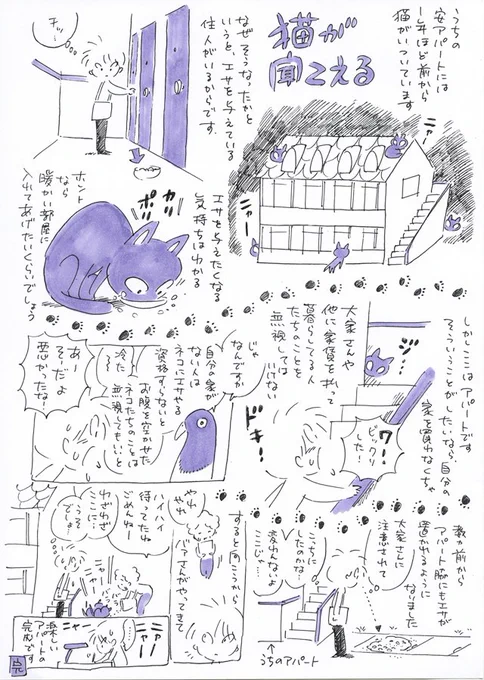 猫が
聞こえる
うちの
安アパートには
1年ほど前から
猫がいついています
ニャー
ニャー
なぜそうなったかと
いうと、エサを与えている
住人がいるからです。
チッ…
エサを与えたくなる
気持ちはわかる
ガッ
ポッ
ホント
なら
暖かい部屋に
入れてあげたいくらいでしょう
しかしここはアパートです
そういうことがしたいなら、自分の
家を買わなくちゃ
大家さんや
他に家賃を払って
暮らしてる人
たちのことを
無視しては
いけない
ワー
ビックリ
した!
ドキー
じゃ
なんですか
自分の家が
ない人は
ネコにエサやる
資格すらないと
お腹を空かせた
ネコたちのことは
無視してもいいと
冷た〜
あー
そうだよ
悪かったな!
数か前から
アパート脇にもエサが
置かれるように
なりました
大家さんに
注意されて
こっちに
したのかな…
変わんないよ
ここじゃ…
↑
うちのアパート
すると向こうから
バアさんがやってきて
やれ
やれ
ハイハイ
待ってたね
ごめんねー
わざわざ
ここに…
うそ
でし…
ニャー
ニャー
ニャー
涼しい
アパートの
完成です
完